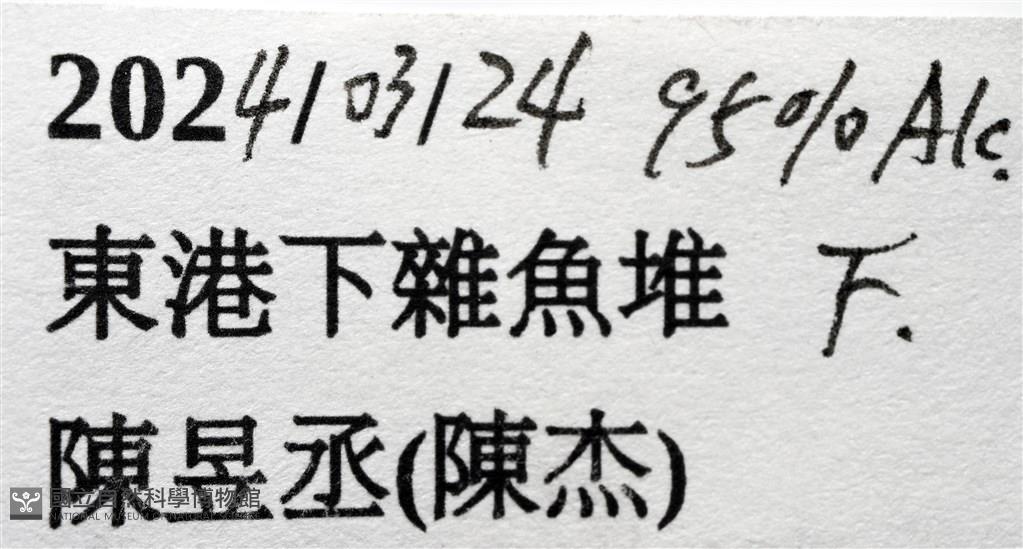 2024/03/24 95% Alc.
東港下雜魚堆 F.
陳昱丞(陳杰)
國立自然科學博物館
NATIONAL MUSEUM OF NATURAL SCIENCE